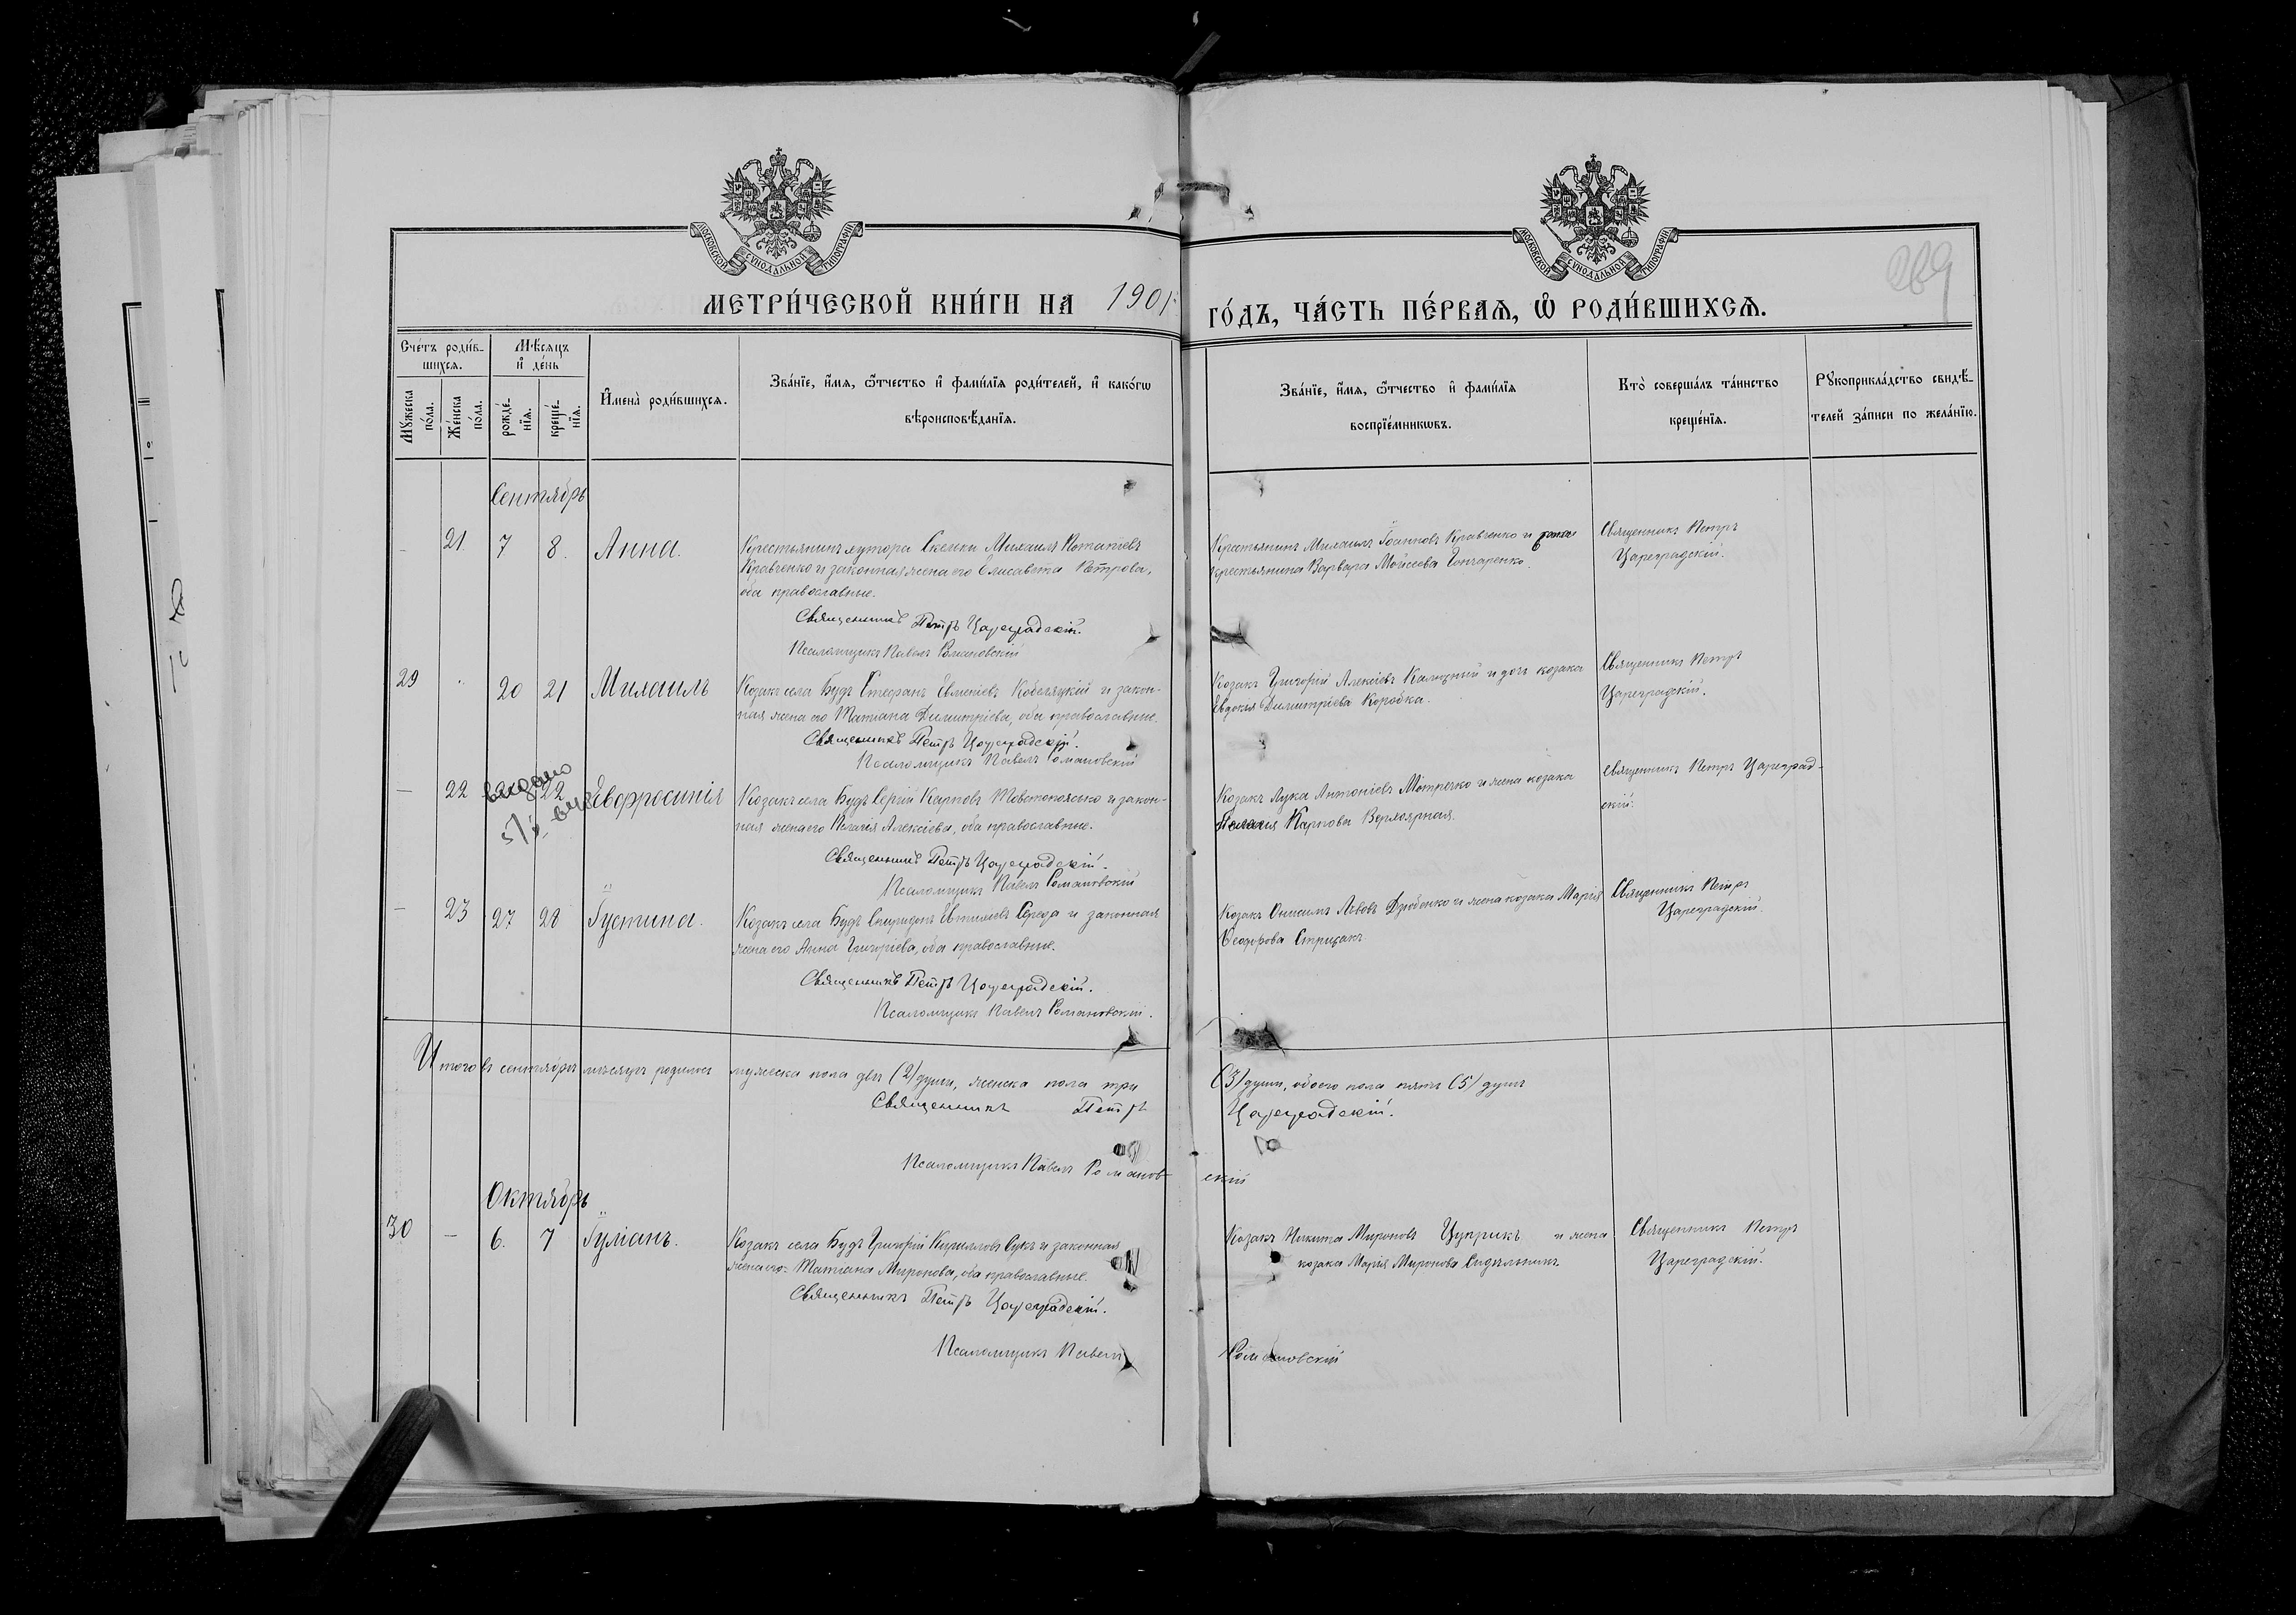 МОСКОВСКОЙ СѴНОДАЛЬНОЙ ТИПОГРАФІИ
МОСКОВСКОЙ СѴНОДАЛЬНОЙ ТИПОГРАФІИ
269
МЕТРИ́ЧЕСКОЙ КНИ́ГИ НА 1901 ГО́ДЪ, ЧА́СТЬ ПЕ́РВАѦ, Ѡ҆ РОДИ́ВШИХСѦ.
Сче́тъ роди́в-
шихсѧ.
Мѣ́сѧцъ
и҆ де́нь
Мꙋжеска по́ла.
Же́нска по́ла.
рожде́-нїѧ.
креще́-нїѧ.
И҆мена̀ роди́вшихсѧ.
Зва́нїе, и҆́мѧ, ѻ҆́тчество и҆ фами́лїѧ роди́телей, и҆ како́гѡ
вѣроисповѣ́данїѧ.
Зва́нїе, и҆́мѧ, ѻ҆́тчество и҆ фами́лїѧ
воспрїе́мникѡвъ.
Кто̀ соверша́лъ та́инство
креще́нїѧ.
Рꙋкоприкла́дство свидѣ́-
телей за́писи по жела́нїю.
Сентябрь
21. 7 8. Анна.
Крестьянинъ хутора Скелки Михаилъ Потапіевъ
Кравченко и законная жена его Елисавета Петрова,
оба православные.
Священникъ Петръ Цареградскій.
Псаломщикъ Павелъ Романовскій
Крестьянинъ Михаилъ Іоанновъ Кравченко и жена
крестьянина Варвара Мойсеева Гончаренко.
Священникъ Петръ
Цареградскій.
29 20 21 Михаилъ
Козакъ села Будъ Стефанъ Евменіевъ Кобеляцкій и закон-
ная жена его Татіана Димитріева, оба православные.
Священникъ Петръ Цареградскій.
Псаломщикъ Павелъ Романовскій
Козакъ Григорій Алексіевъ Калюжный и дочь козака
Евдокія Димитріева Коробка.
Священникъ Петръ
Цареградскій.
— 22 22 Евфросинія
выдано
Козакъ села Будъ Сергій Карповъ Товстопятько и закон-
ная жена его Пелагія Алексіева, оба православные.
Священникъ Петръ Цареградскій.
Псаломщикъ Павелъ Романовскій
Козакъ Лука Антоніевъ Мотречко и жена козака
Пелагія Карпова
Священникъ Петръ Цареград-
скій.
— 23 27 28 Іустина.
Козакъ села Будъ Спиридонъ Евтихіевъ Середа и законная
жена его Анна Григоріева, оба православные.
Священникъ Петръ Цареградскій.
Псаломщикъ Павелъ Романовскій.
Козакъ Онисимъ Львовъ Дзюбенко и жена козака Марія
Ѳеодорова Стрижакъ
Священникъ Петръ
Цареградскій.
Итого въ сентябрѣ мѣсяцѣ родилось мужеска пола двѣ (2) души, женска пола три (3) души, обоего пола пять (5) душъ
Священникъ Петръ Цареградскій.
Псаломщикъ Павелъ Романовскій
Октябрь
30 — 6. 7 Іуліанъ.
Козакъ села Будъ Григорій Кирилловъ Сукъ и законная
жена его Татіана Миронова, оба православные.
Священникъ Петръ Цареградскій.
Псаломщикъ Павелъ Романовскій
Козакъ Никита Мироновъ Цуприкъ и жена
козака Марія Миронова Сидельникъ
Священникъ Петръ
Цареградскій.